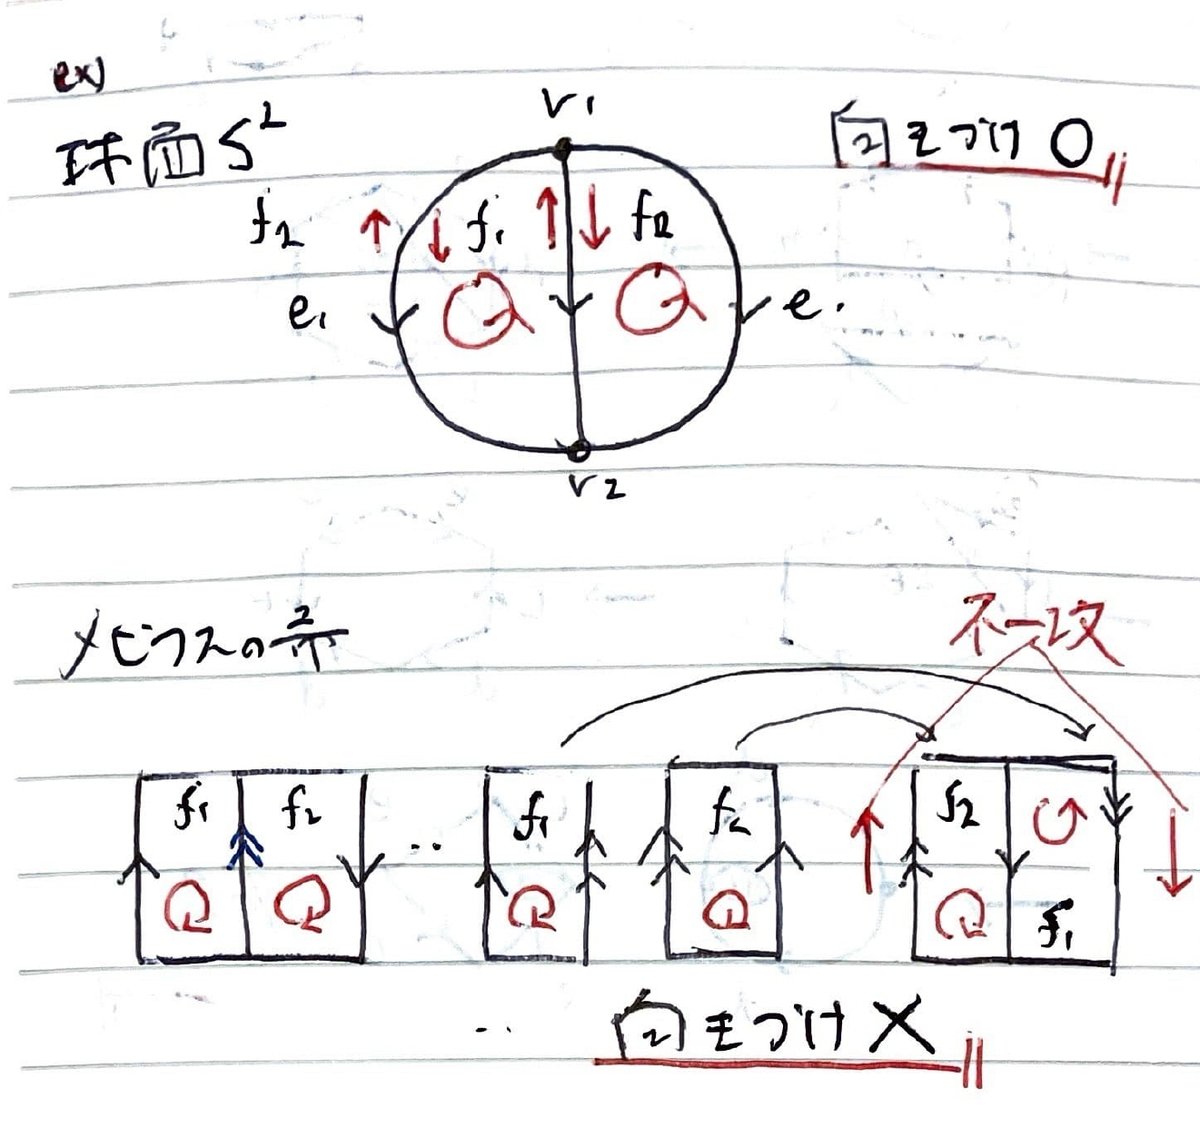 ex)
球面S²
v₁
向きづけ○
f₂ f₁ f₂
e₁ e₁
v₂
メビウスの帯
不一致
f₁ f₂ f₁ f₂ f₂
f₁
向きづけ×